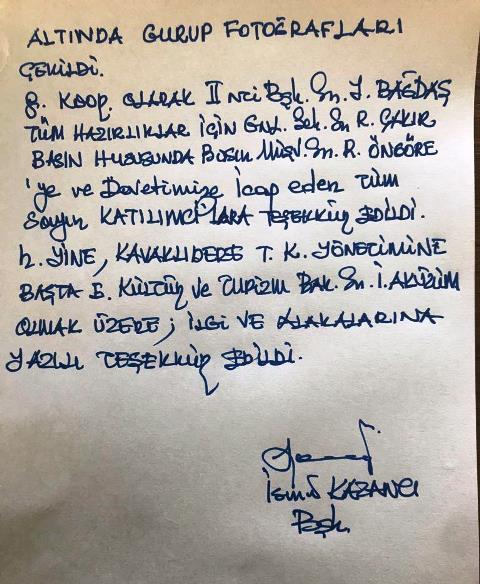 ALTINDA GURUP FOTOĞRAFLARI
ÇEKİLDİ.
g. KOOP. OLARAK II nci Bşk. Sn. İ. BAĞDAŞ
TÜM HAZIRLIKLAR İÇİN GNL. Sek. Sn R. ÇAKIR
BASIN HUSUSUNDA Basın Müşv. Sn. R. ÖNGÖRE
'ye ve Davetimize İcap eden TÜM
Sayın KATILIMCILARA TEŞEKKÜR EDİLDİ.
h. YİNE, KAVAKLIDERE T. K. YÖNETİMİNE
BAŞTA E. KÜLTÜR ve TURİZM BAK. Sn. İ. AKÜZÜM
OLMAK ÜZERE; İLGİ VE ALAKALARINA
YAZILI TEŞEKKÜR EDİLDİ.
İsmail KAZANCI
Bşk.